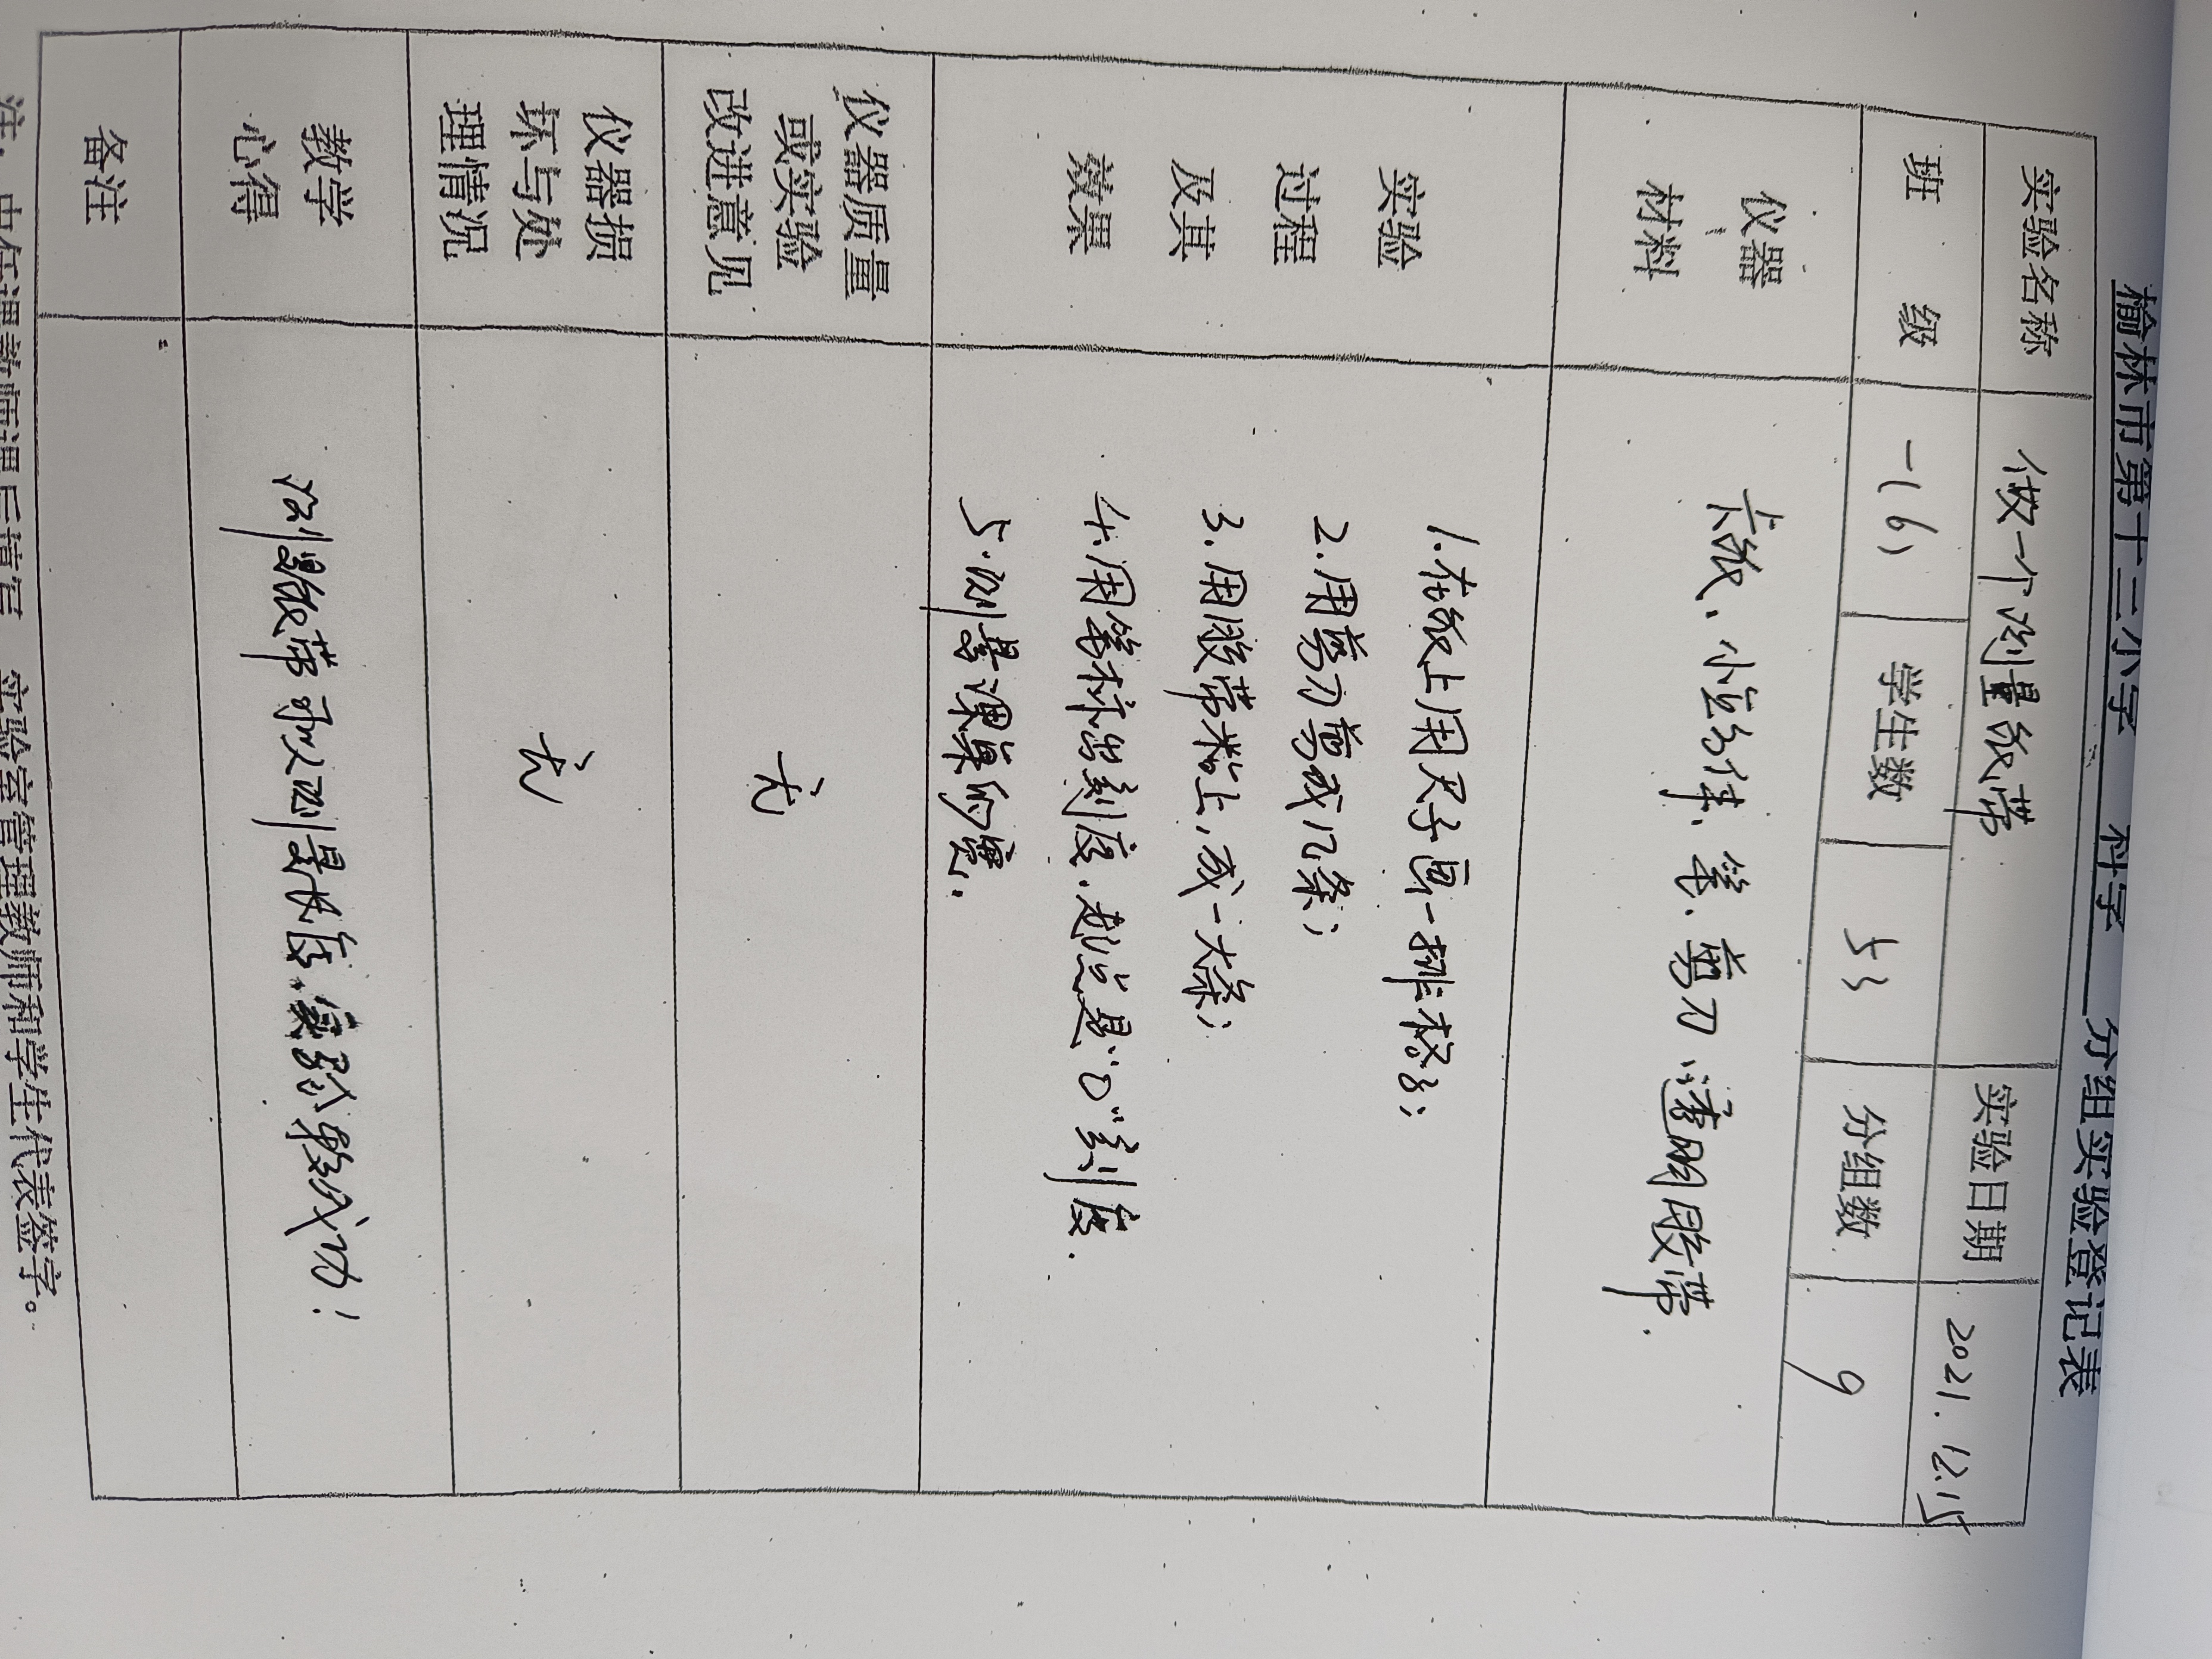 榆林市第十三小学 科学 分组实验登记表
实验名称 做一个测量纸带 实验日期 2021.12.15
班级 一(6) 学生数 53 分组数 9
仪器材料 纸、小立方体、笔、剪刀、透明胶带.
实验过程及其效果
1.在纸上用尺子画一排格子;
2.用剪刀剪成几条;
3.用胶带粘上,成一大条;
4.用笔标出刻度.起始是“0”刻度.
5.测量课桌的宽.
仪器质量或实验改进意见 无
仪器损坏与处理情况 无
教学心得 测量纸带可以测量长度.实验较成功!
备注
注:由任课教师课后填写 实验室管理教师和学生代表签字。